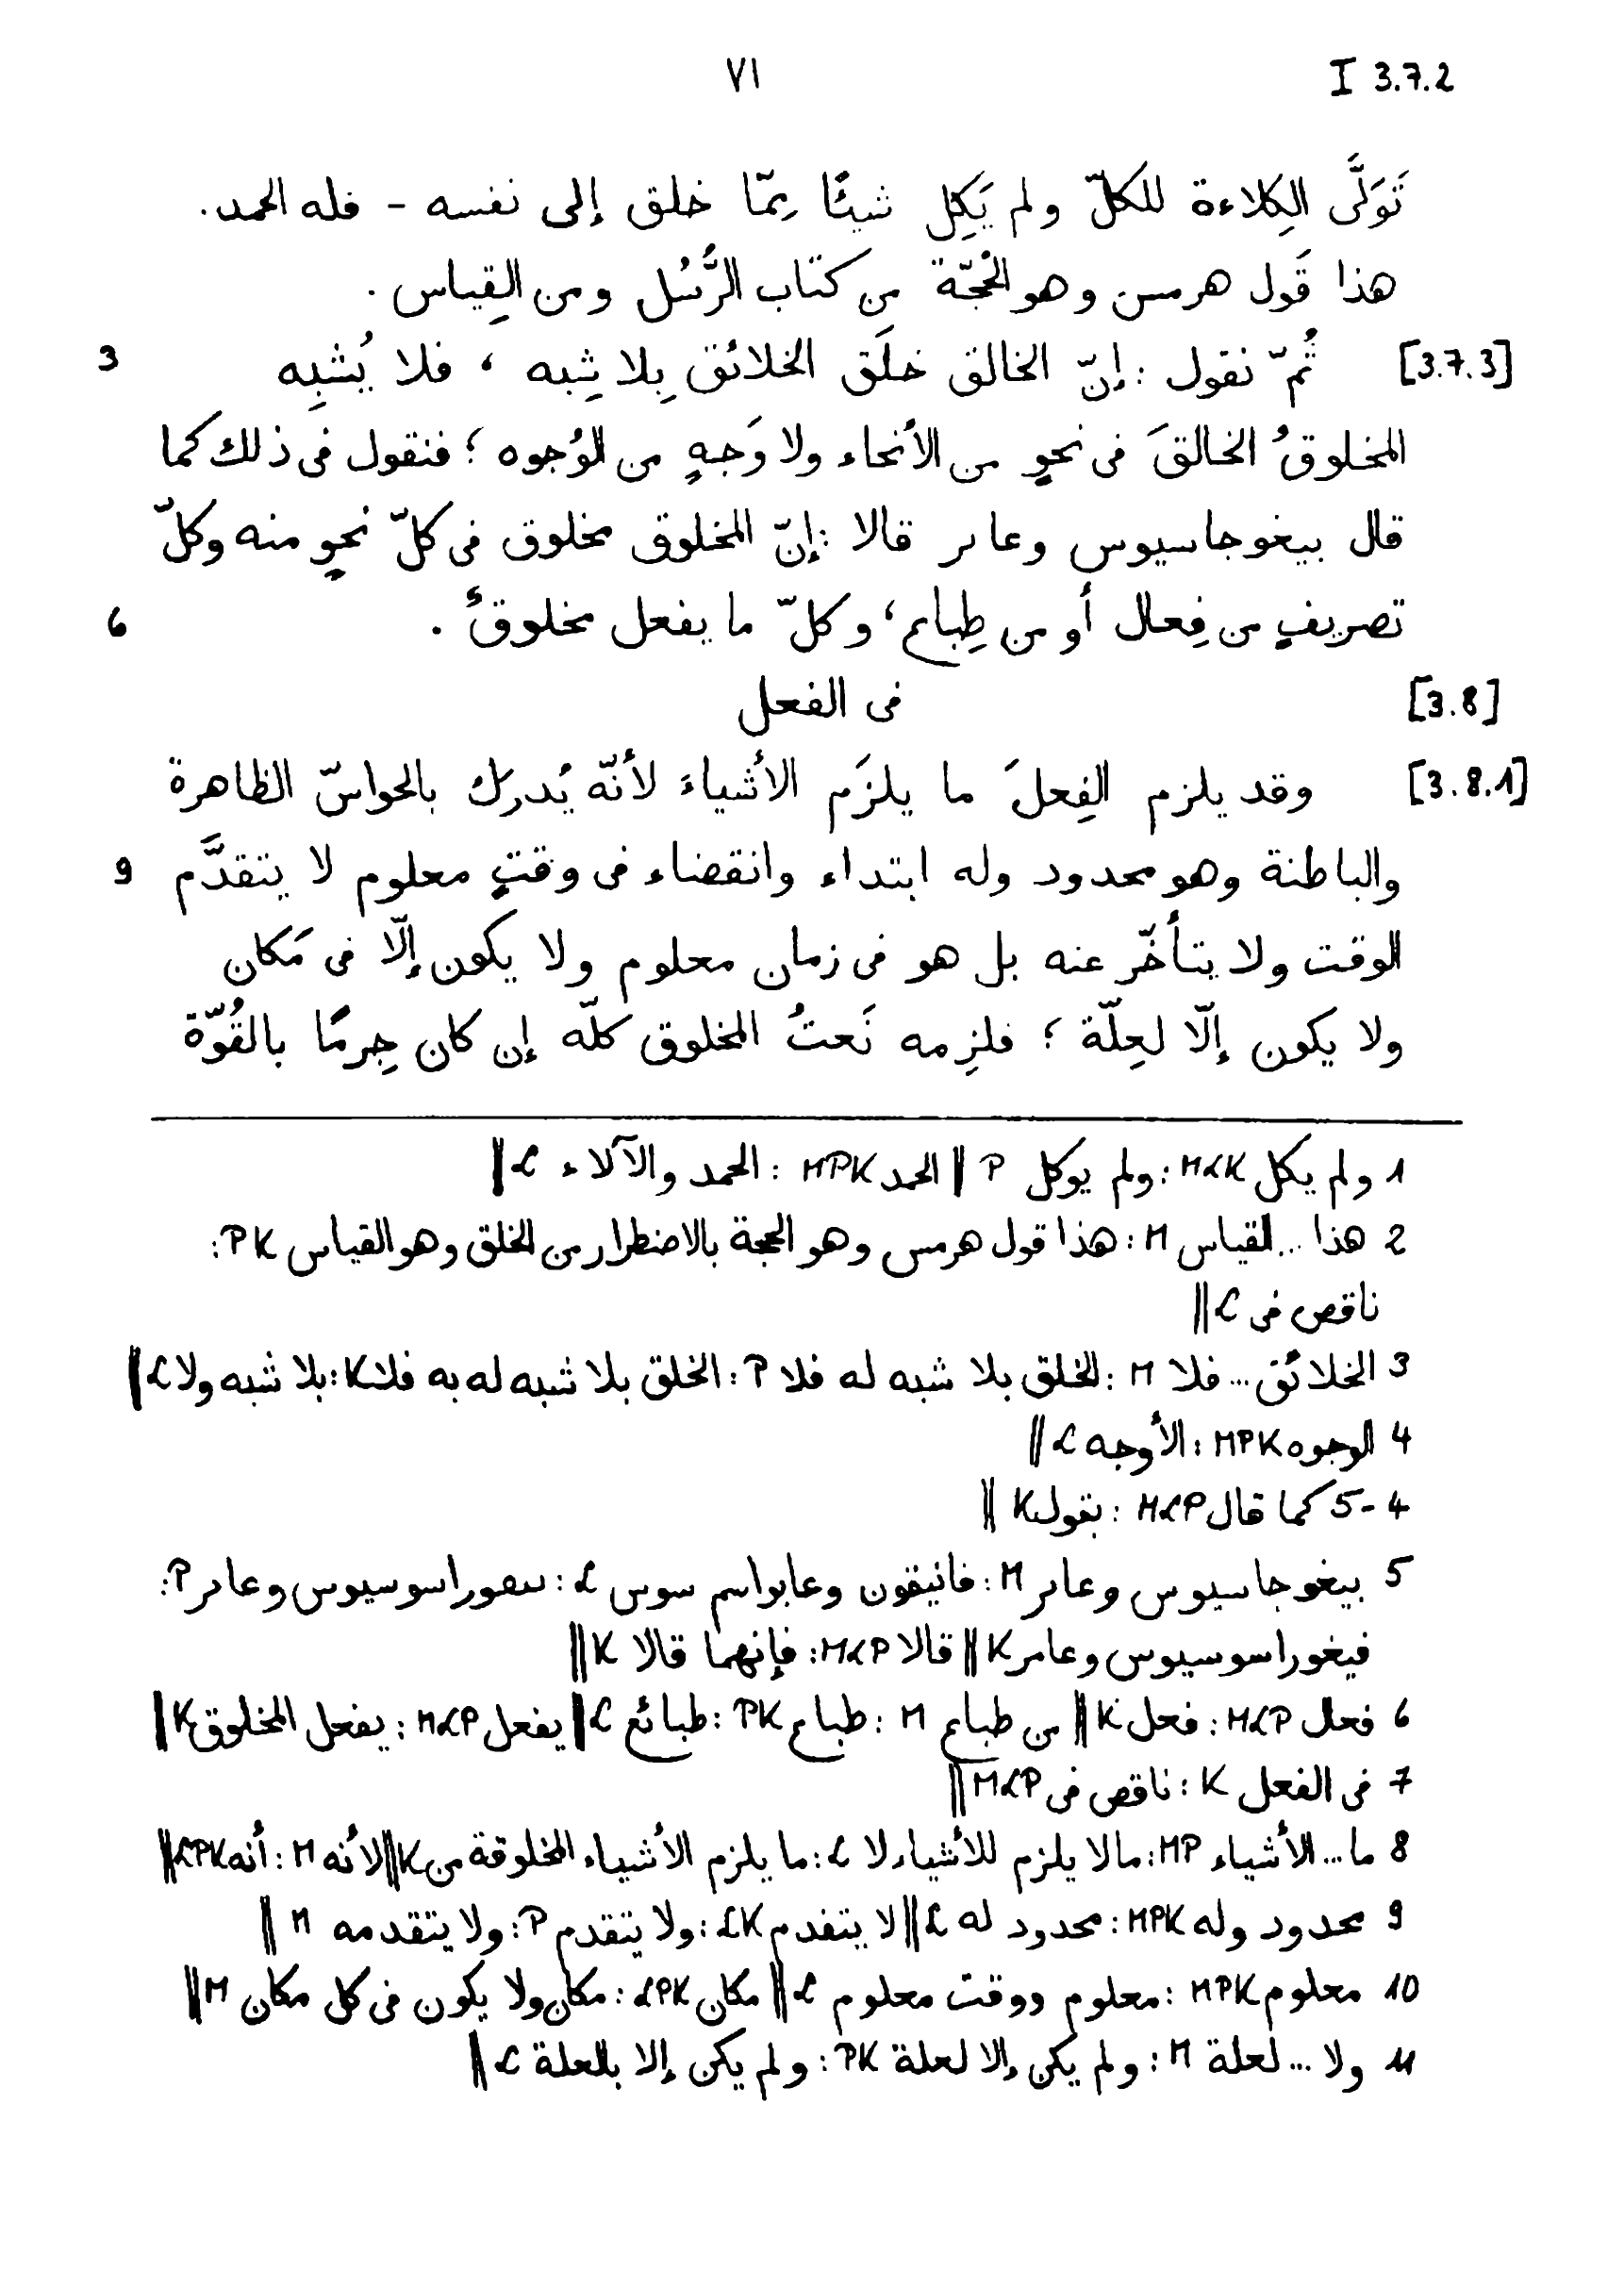 ٧١ I 3.7.2
تَوَلَّى الكِلاءة للكلّ ولم يَكِل شيئًا مِمّا خلق إلى نفسه - فله الحمد.
هذا قَول هرمس وهو الحُجّة من كتاب الرُّسُل ومن القِياس.
[3.7.3] ثُمّ نقول: إنّ الخالق خلَق الخلائق بِلا شِبه، فلا يُشبِه 3
المخلوقُ الخالقَ فى نحوٍ من الأنحاء ولا وَجهٍ من الوُجوه؛ فنقول فى ذلك كما
قال بيغوجاسيوس وعابر قالا: إنّ المخلوق مخلوق فى كلّ نحوٍ منه وكلّ
تصريفٍ من فِعال أو من طِباع، وكلّ ما يفعل مخلوقٌ. 6
[3.8] فى الفعل
[3.8.1] وقد يلزم الفِعلَ ما يلزَم الأشياءَ لأنّه يُدرَك بالحواسّ الظاهرة
والباطنة وهو محدود وله ابتداء وانقضاء فى وقتٍ معلوم لا يتقدَّم 9
الوقت ولا يتأخّر عنه بل هو فى زمان معلوم ولا يكون إلّا فى مَكان
ولا يكون إلّا لعِلّة؛ فلزِمه نَعتُ المخلوق كلّه إن كان جِرمًا بالقُوّة
1 ولم يكل MLK: ولم يوكل P || الحمد MPK: الحمد والآلاء L ||
2 هذا ... القياس M: هذا قول هرمس وهو الحجة بالاضطرار من الخلق وهو القياس PK:
ناقص فى L ||
3 الخلائق ... فلا M: الخلق بلا شبه له فلا P: الخلق بلا شبه له به فلا K: بلا شبه ولا L ||
4 الوجوه MPK: الأوجه L ||
4-5 كما قال MLP: بقول K ||
5 بيغوجاسيوس وعابر M: فانيقون وعابواسم سوس L: وعابر P:
فيغوراسوسيوس وعامر K || قالا MLP: فإنهما قالا K ||
6 فعال MLP: فعل K || من طباع M: طباع PK: طبائع L || يفعل MLP: يفعل المخلوق K ||
7 فى الفعل K: ناقص فى MLP ||
8 ما ... الأشياء MP: مالا يلزم للأشياء لا L: ما يلزم الأشياء المخلوقة من K || لأنه M: أنه LPK ||
9 محدود وله MPK: محدود له L || لا يتقدم LK: ولا يتقدم P: ولا يتقدمه M ||
10 معلوم MPK: معلوم ووقت معلوم L || مكان LPK: مكان ولا يكون فى كل مكان M ||
11 ولا ... لعلة M: ولم يكن إلا لعلة PK: ولم يكن إلا بالعلة L ||